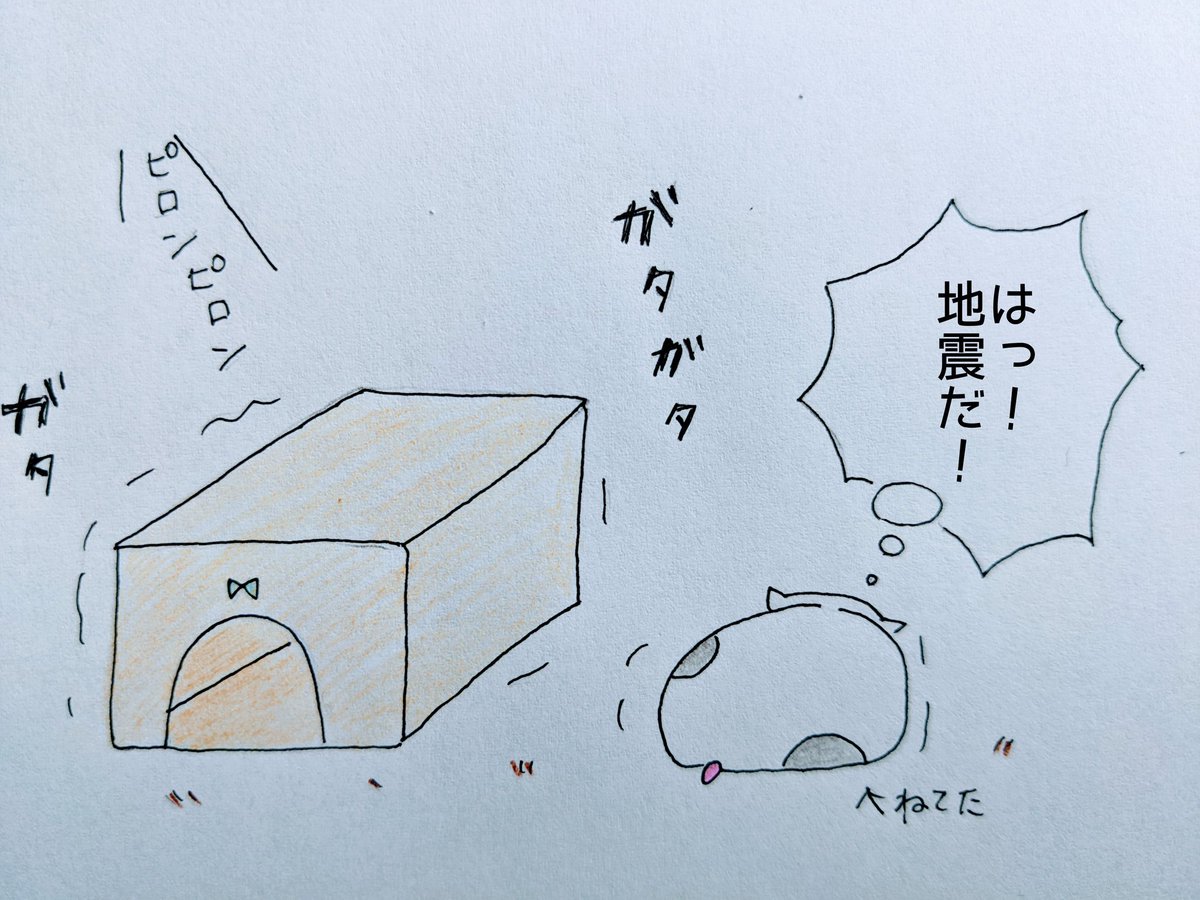 はっ！
地震だ！
ガタガタ
ピロンピロン
ガタ
ねてた